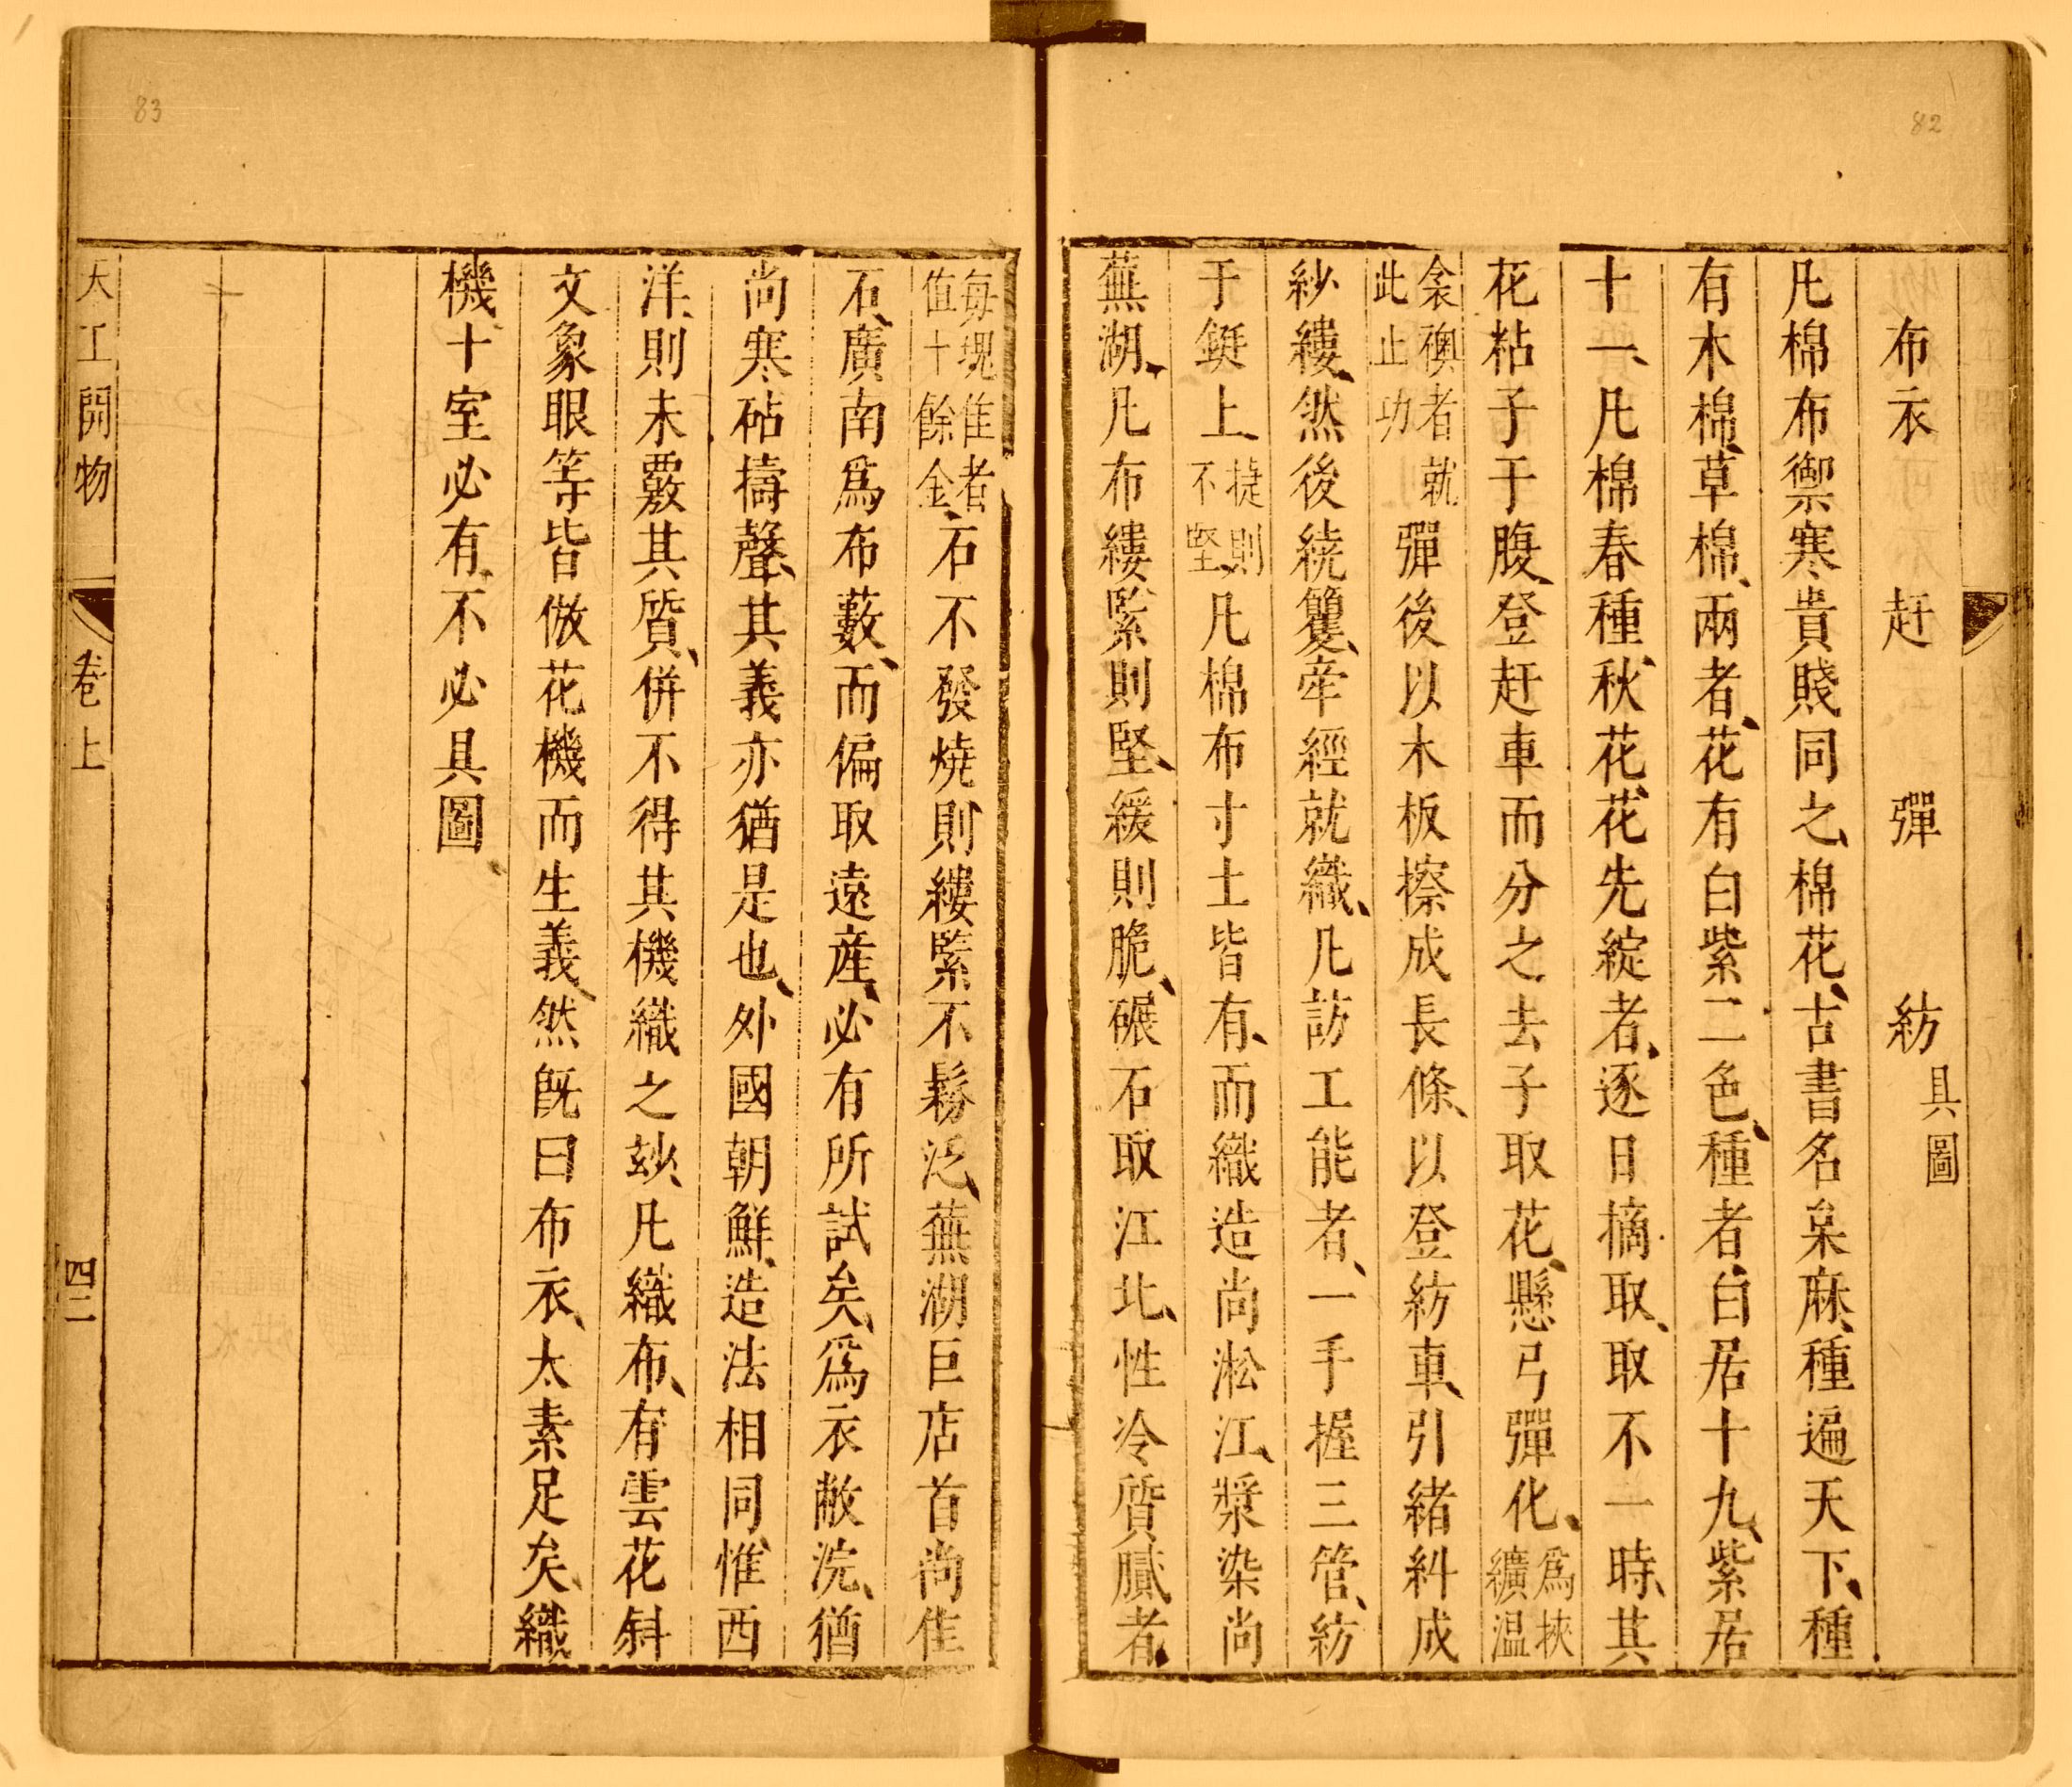 82
布衣　赶　彈　紡　具圖
凡棉布禦寒貴賤同之、棉花、古書名枲麻、種遍天下、種
有木棉、草棉、兩者、花有白紫二色、種者、白居十九、紫居
十一、凡棉春種、秋花、花先綻者、逐日摘取、取不一時、其
花粘子于腹、登赶車而分之去子取花、懸弓彈化、爲挾纊温
衾襖者就此止功彈後以木板擦成長條、以登紡車、引緒糾成
紗縷、然後繞籰、牽經就織、凡訪工能者、一手握三管、紡
于鋌上、捷則不堅、凡棉布寸土皆有、而織造尚淞江、漿染尚
蕪湖、凡布縷緊則堅、緩則脆、碾石取江北、性冷質膩者、
每塊佳者值十餘金、石不發燒則縷緊不鬆泛、蕪湖巨店首尚佳
石、廣南爲布藪、而偏取遠産、必有所試矣、爲衣敝浣、猶
尚寒砧擣聲、其義亦猶是也、外國朝鮮、造法相同、惟西
洋、則未覈其質、併不得其機織之玅、凡織布、有雲花斜
文象眼等皆倣花機而生義、然旣曰布衣、太素足矣、織
機十室必有、不必具圖
天工開物　卷上　四二
83